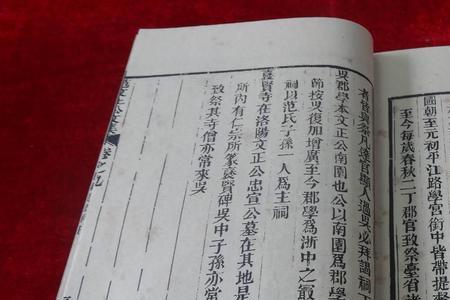 國朝至元初平江路學宮銜中皆帶提
至今每歲春秋二丁郡官致祭臺省諸
過吳必拜謁祠下
吳郡學本文正公南園也公以南園爲郡學
節按吳復加增廣至今郡學爲浙中之㝡
祠以范氏子孫一人爲主祠
褒賢寺在洛陽文正公忠宣公墓在其地
所內有仁宗所篆褒賢碑吳中子孫亦
致祭其寺僧亦常來吳
文正公文集
卷之九